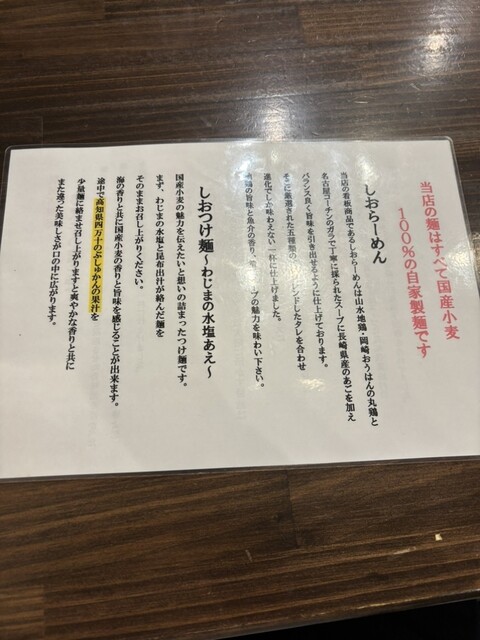 当店の麺はすべて国産小麦
100%の自家製麺です
しおらーめん
当店の看板商品であるしおらーめんは山水地鶏・岡崎おうはんの丸鶏と
名古屋コーチンのガラで丁寧に採られたスープに長崎県産のあごを加え
バランス良く旨味を引き出せるように仕上げております。
厳選された五種類の レンドしたタレを合わせ
進化でしか味わえない一杯に仕上げました。
の旨味と魚介の香り、 ープの魅力を味わい下さい。
しおつけ麺～わじまの水塩あえ～
国産小麦の魅力を伝えたいと想いの詰まったつけ麺です。
まず、わじまの水塩と昆布出汁が絡んだ麺を
そのままお召し上がりください。
海の香りと共に国産小麦の香りと旨味を感じることが出来ます。
途中で高知県四万十のぶしゅかんの果汁を
少量麺に絡ませ召し上がりますと爽やかな香りと共に
また違った美味しさが口の中に広がります。